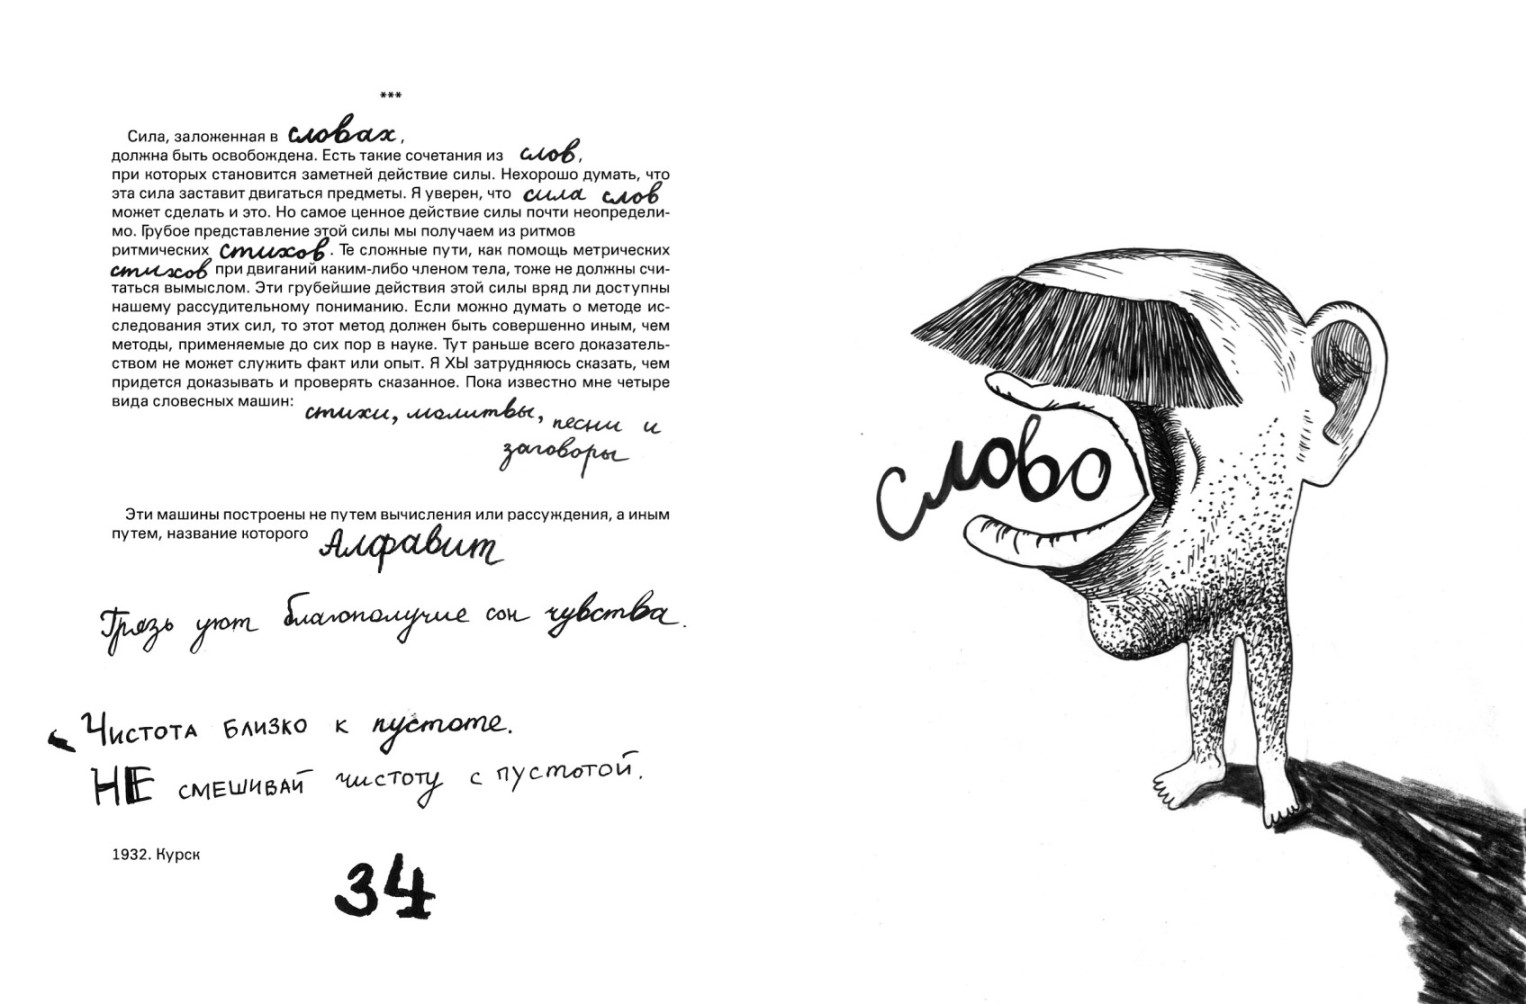 ***
Сила, заложенная в словах,
должна быть освобождена. Есть такие сочетания из слов,
при которых становится заметней действие силы. Нехорошо думать, что
эта сила заставит двигаться предметы. Я уверен, что сила слов
может сделать и это. Но самое ценное действие силы почти неопредели-
мо. Грубое представление этой силы мы получаем из ритмов
ритмических стихов. Те сложные пути, как помощь метрических
стихов при двиганий каким-либо членом тела, тоже не должны счи-
таться вымыслом. Эти грубейшие действия этой силы вряд ли доступны
нашему рассудительному пониманию. Если можно думать о методе ис-
следования этих сил, то этот метод должен быть совершенно иным, чем
методы, применяемые до сих пор в науке. Тут раньше всего доказатель-
ством не может служить факт или опыт. Я ХЫ затрудняюсь сказать, чем
придется доказывать и проверять сказанное. Пока известно мне четыре
вида словесных машин: стихи, молитвы, песни и
заговоры
Эти машины построены не путем вычисления или рассуждения, а иным
путем, название которого Алфавит
Грязь уют благополучие сон чувства.
Чистота близко к пустоте.
НЕ смешивай чистоту с пустотой.
1932. Курск
34
слово